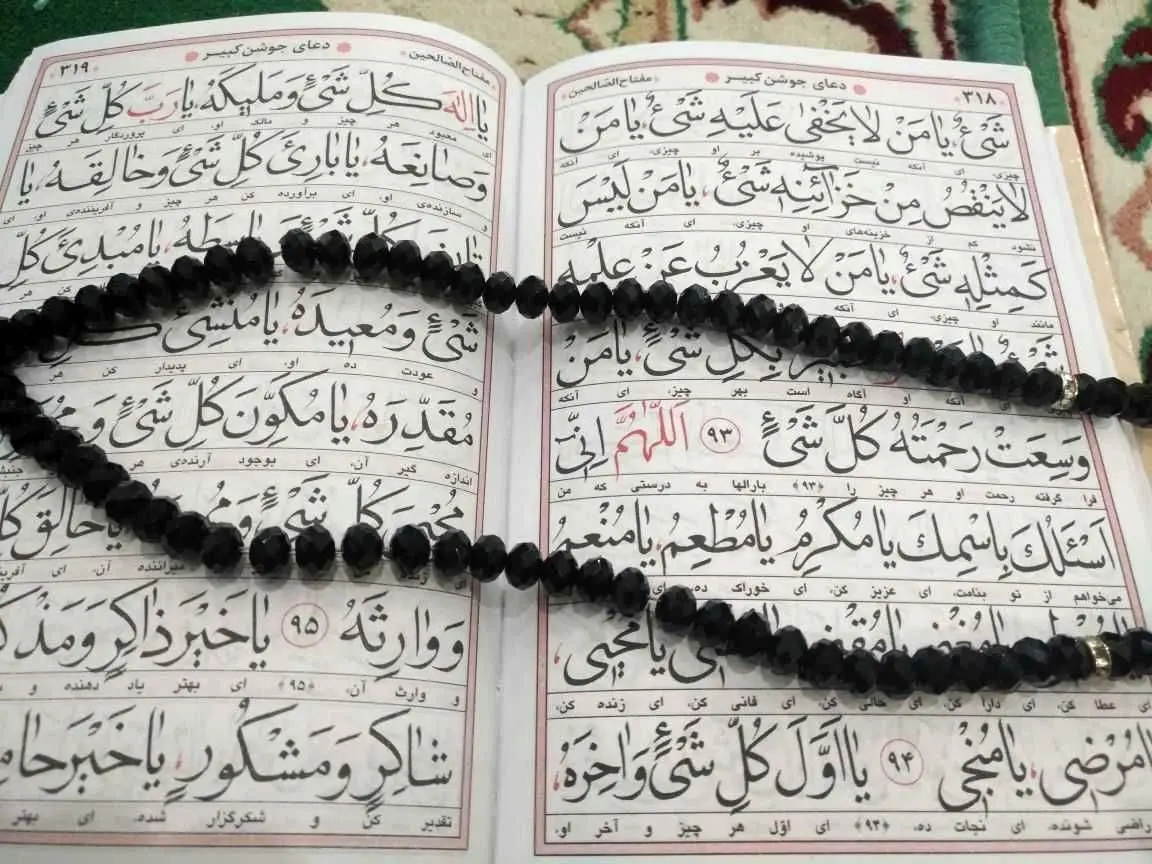 ۳۱۸ دعای جوشن کبیر مفتاح الصالحین
شَیْءٌ، یا مَنْ لا یَخْفی عَلَیْهِ شَیْءٌ، یا مَنْ
چیزی، ای آنکه نیست پوشیده بر او چیزی، ای آنکه
لا یَنْقُصُ مِنْ خَزآئِنِهِ شَیْءٌ، یا مَنْ لَیْسَ
نشود کم از خزینه‌های او چیزی، ای آنکه نیست
کَمِثْلِهِ شَیْءٌ، یا مَنْ لا یَعْزُبُ عَنْ عِلْمِهِ
مانند او چیزی، ای آنکه
بِکُلِّ شَیْءٍ، یا مَنْ
آنکه او آگاه است بهر چیز، ای آنکه
وَسِعَتْ رَحْمَتُهُ کُلَّ شَیْءٍ ۹۳ اَللّهُمَّ اِنّی
فرا گرفته رحمت او هر چیز را ﴿۹۳﴾ بارالها به درستی که من
اَسْئَلُکَ بِاسْمِکَ یا مُکْرِمُ یا مُطْعِمُ، یا مُنْعِمُ
می‌خواهم از تو بنامت، ای عزیز کن، ای خوراک ده، ای
یا مُحْیی،
ای عطا کن، ای دارا کن، ای خالی کن، ای فانی کن، ای زنده کن،
یا مُرْضی، یا مُنْجی ۹۴ یا اَوَّلَ کُلِّ شَیْءٍ وَاخِرَهُ
راضی شونده، ای نجات ده، ﴿۹۴﴾ ای اوّل هر چیز و آخر او،
۳۱۹ دعای جوشن کبیر مفتاح الصالحین
یا اِلهَ کُلِّ شَیْءٍ وَمَلیکَهُ، یا رَبَّ کُلِّ شَیْءٍ
ای معبود هر چیز و مالک او، ای پروردگار هر چیز
وَصانِعَهُ، یا بارِئَ کُلِّ شَیْءٍ وَخالِقَهُ، یا
و سازنده‌ی او، ای برآورده کن هر چیز و آفریننده‌ی او، ای
یا مُبْدِئَ کُلِّ
کن هر
شَیْءٍ وَمُعیدَهُ، یا مُنْشِئَ کُلِّ
و عودت ده او، ای پدیدار کن هر
مُقَدِّرَهُ، یا مُکَوِّنَ کُلِّ شَیْءٍ
اندازه گیر آن، ای بوجود آرنده‌ی هر
کُلِّ شَیْءٍ یا خالِقَ
آن، ای
وَوارِثَهُ ۹۵ یا خَیْرَ ذاکِرٍ
و وارث آن، ﴿۹۵﴾ ای بهتر یاد دهنده و
شاکِرٍ وَمَشْکُورٍ، یا خَیْرَ
تقدیر کن و شکرگزار شده، ای بهتر